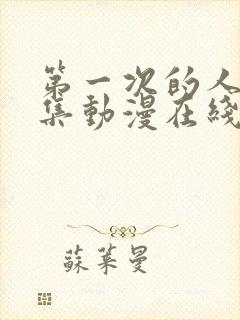 第一次的人
集動漫在綫
蘇萊曼